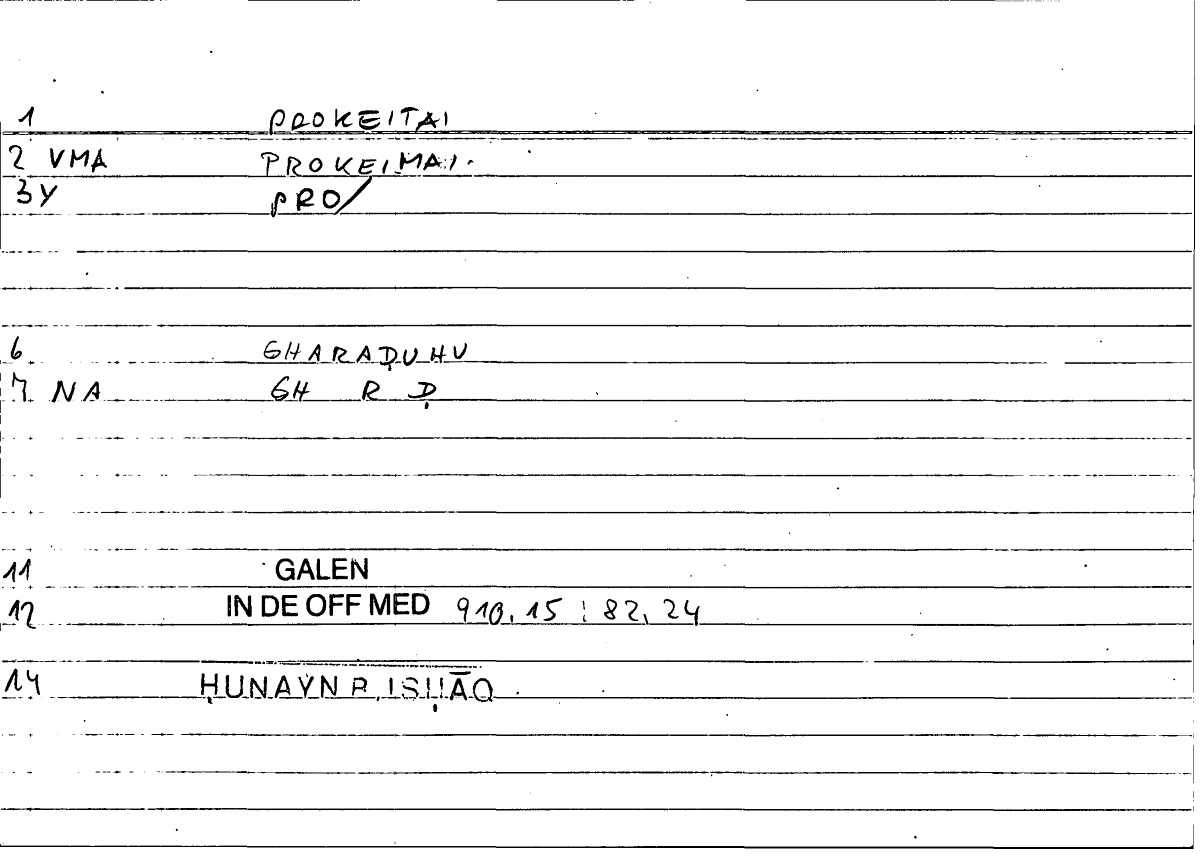 1 PROKEITAI
2 VMA PROKEIMAI.
3Y PRO/
6 GHARAḌUHU
7 NA GH R Ḍ
11 GALEN
12 IN DE OFF MED 910,15 : 82,24
14 ḤUNAYN B. ISḤĀQ